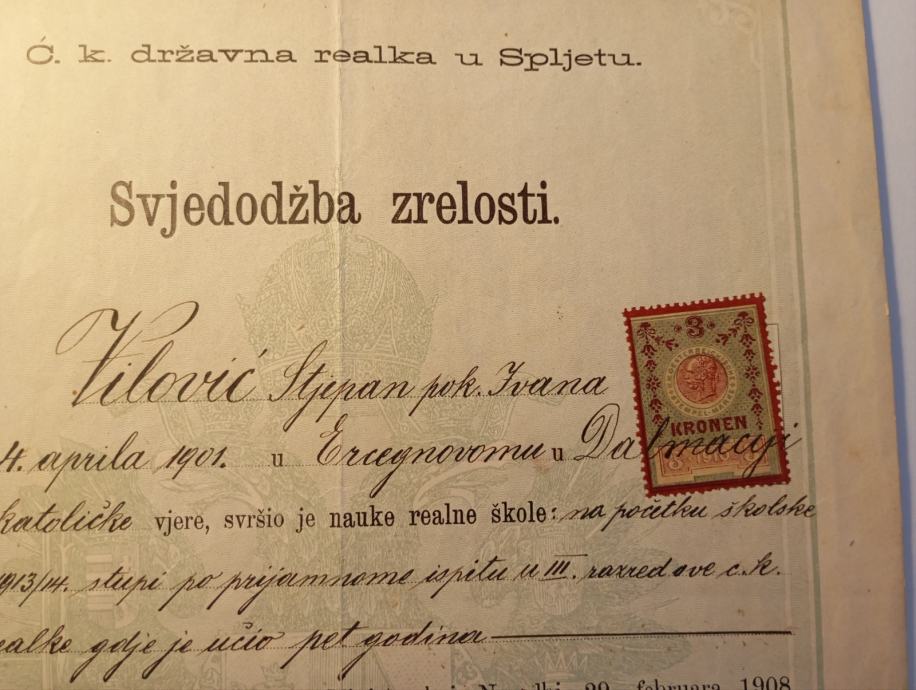 Ć. k. državna realka u Spljetu.
Svjedodžba zrelosti.
Vilović Stjepan pok. Ivana
4. aprila 1901. u Ercegnovomu u Dalmaciji
katoličke vjere, svršio je nauke realne škole: na početku školske
1913/14. stupi po prijamnome ispitu u III. razred ove c. k.
realke gdje je učio pet godina
29. februara 1908
3
KRONEN